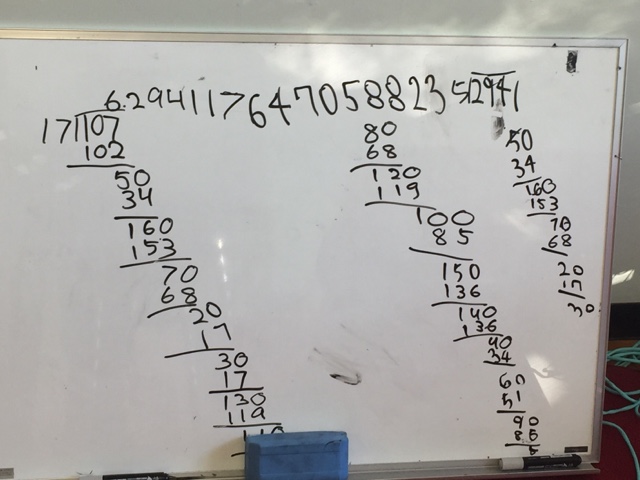 6.294117647058823 512941
17107
102
50
34
160
153
70
68
20
17
30
17
130
119
80
68
120
119
100
85
150
136
140
136
40
34
60
51
90
85
5
50
34
160
153
70
68
20
17
30